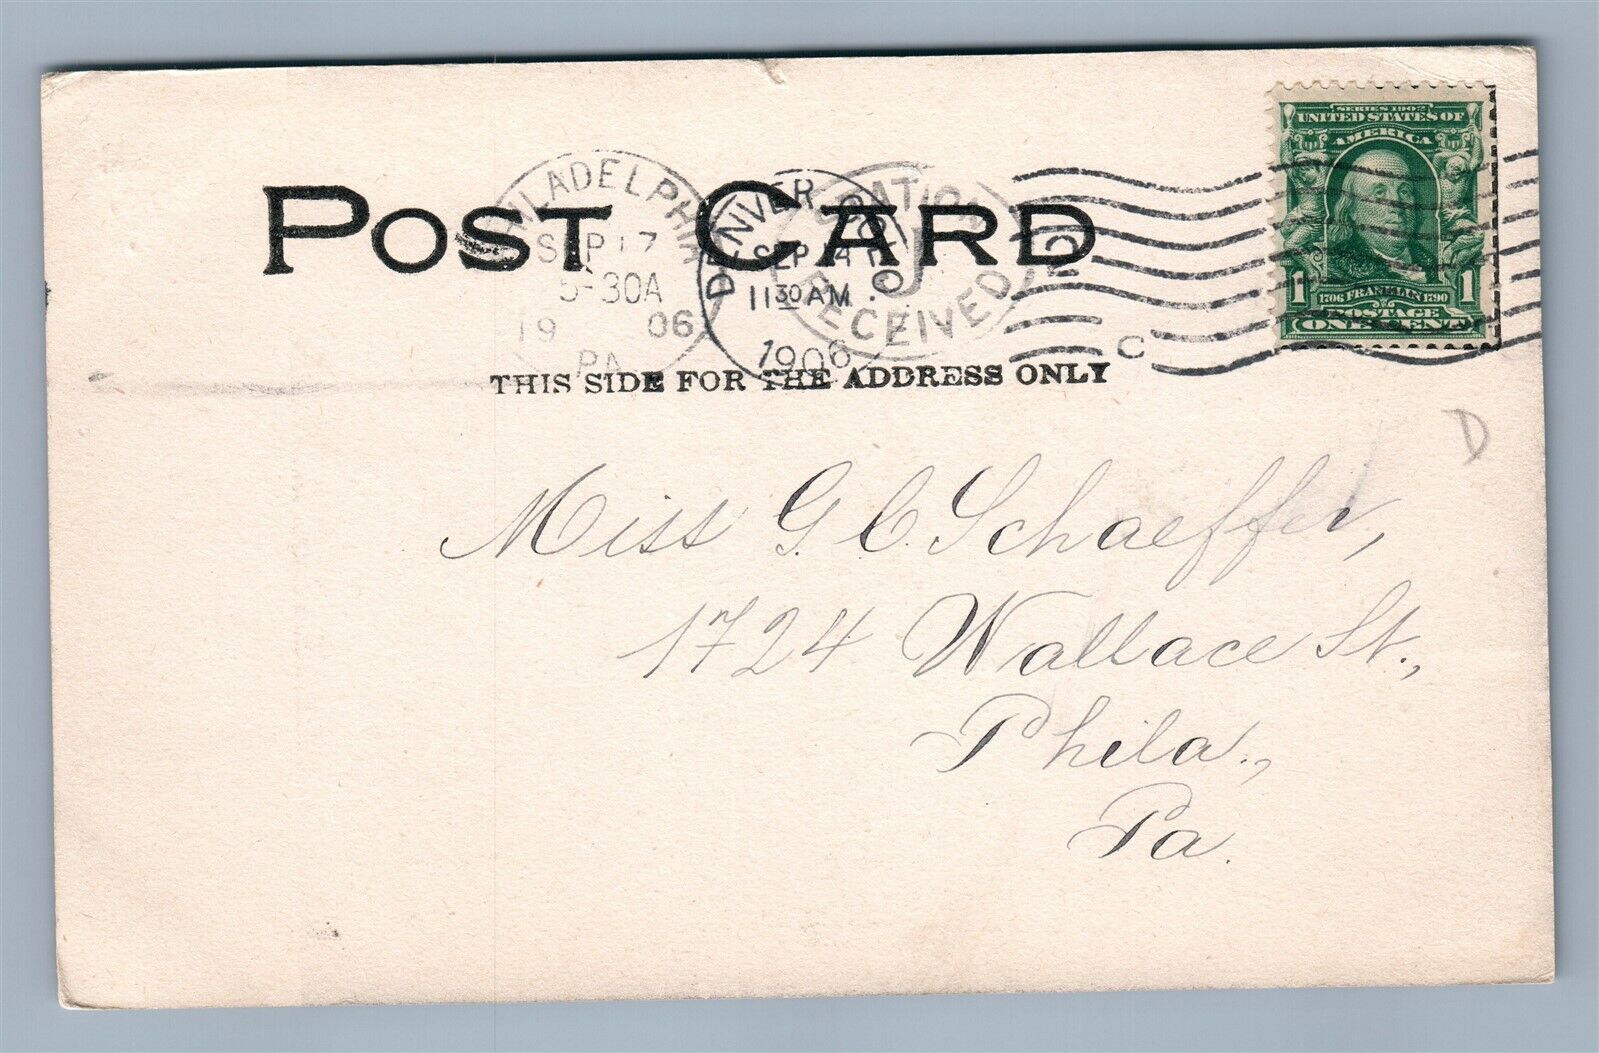 POST CARD
THIS SIDE FOR THE ADDRESS ONLY
PHILADELPHIA
SEP 17
5-30A
19 06
PA.
DENVER COLO.
SEP 14
11 30 AM
1906
STATION
J
RECEIVED
C
SERIES 1902
UNITED STATES OF
AMERICA
1 1
1706 FRANKLIN 1790
POSTAGE
ONE CENT
D
Miss G. C. Schaeffer,
1724 Wallace St.,
Phila.,
Pa.